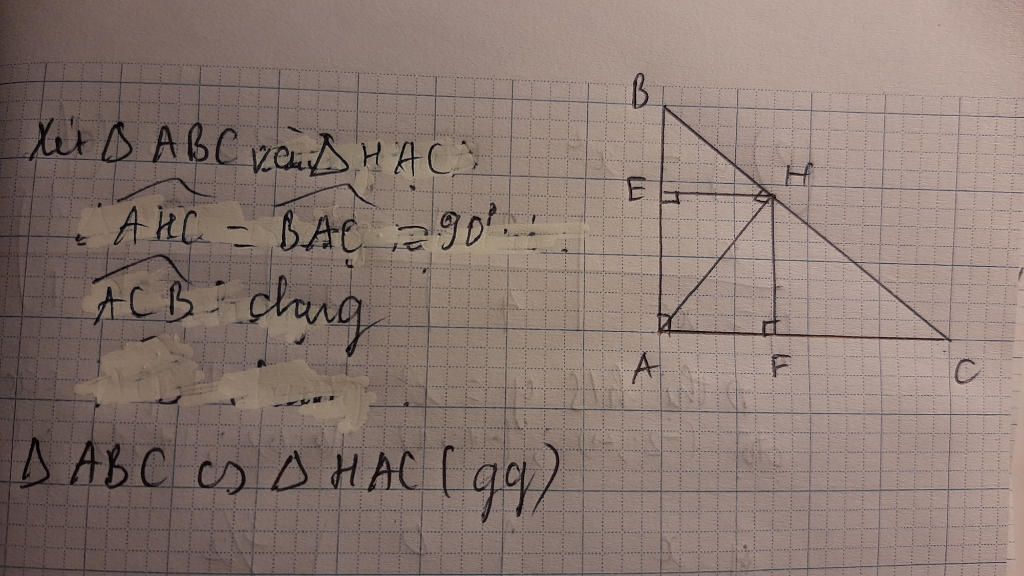 Xét Δ ABC và Δ HAC:
AHC = BAC = 90°
ACB : chung
Δ ABC ∽ Δ HAC (gg)
B
E
H
A
F
C